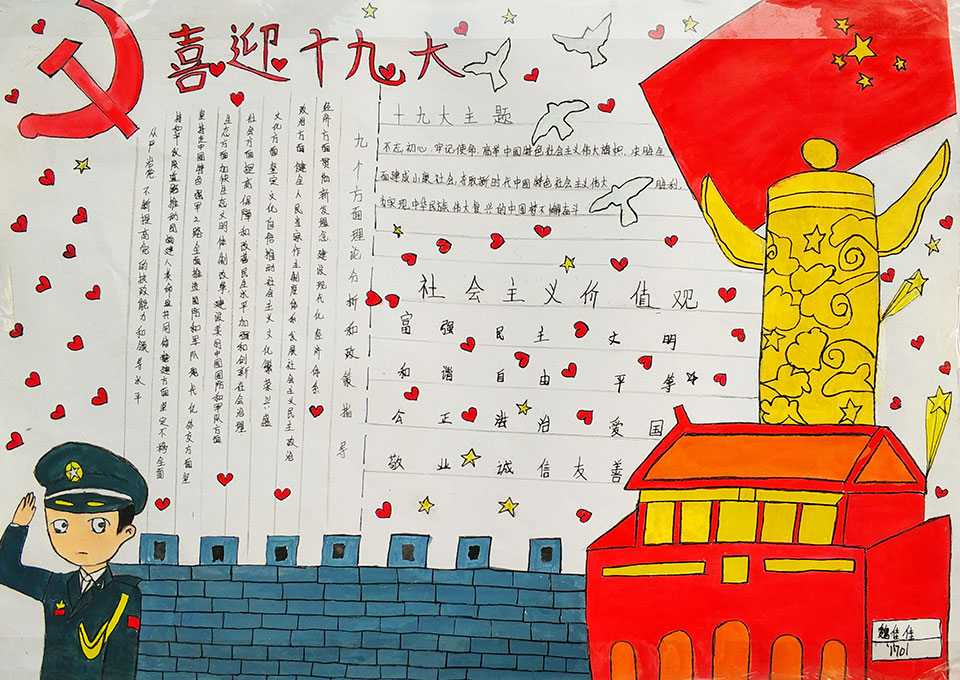 喜迎十九大
十九大主题
不忘初心，牢记使命，高举中国特色社会主义伟大旗帜，决胜全
面建成小康社会，夺取新时代中国特色社会主义伟大胜利，
为实现中华民族伟大复兴的中国梦不懈奋斗
社会主义价值观
富强 民主 文明
和谐 自由 平等
公正 法治 爱国
敬业 诚信 友善
九个方面理论分析和政策指导
经济方面贯彻新发展理念 建设现代化经济体系
政治方面 健全人民当家作主制度体系 发展社会主义民主政治
文化方面坚定文化自信推动社会主义文化繁荣兴盛
社会方面提高保障和改善民生水平加强和创新社会治理
生态方面加快生态文明体制改革 建设美丽中国国防和军队方面
坚持走中国特色强军之路全面推进国防和军队现代化 外交方面坚
持和平发展道路推动构建人类命运共同体党建方面坚定不移全面
从严治党 不断提高党的执政能力和领导水平
魏佳佳
1701